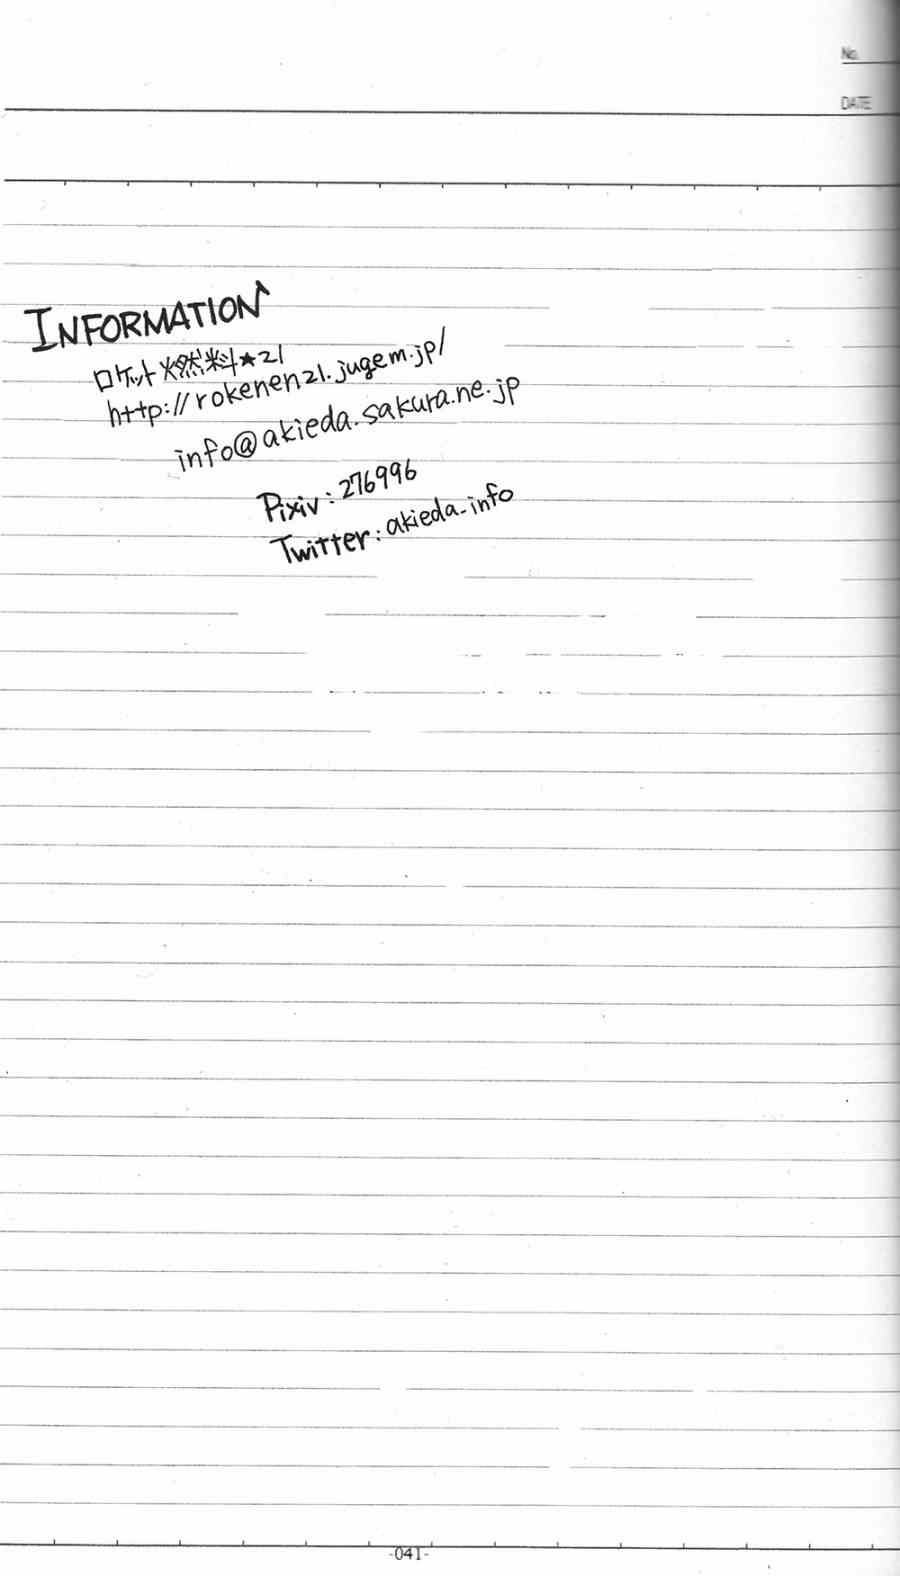 No.
DATE
INFORMATION
ロケット燃料★21
http://rokenen21.jugem.jp/
info@akieda.sakura.ne.jp
Pixiv:276996
Twitter:akieda_info
-041-